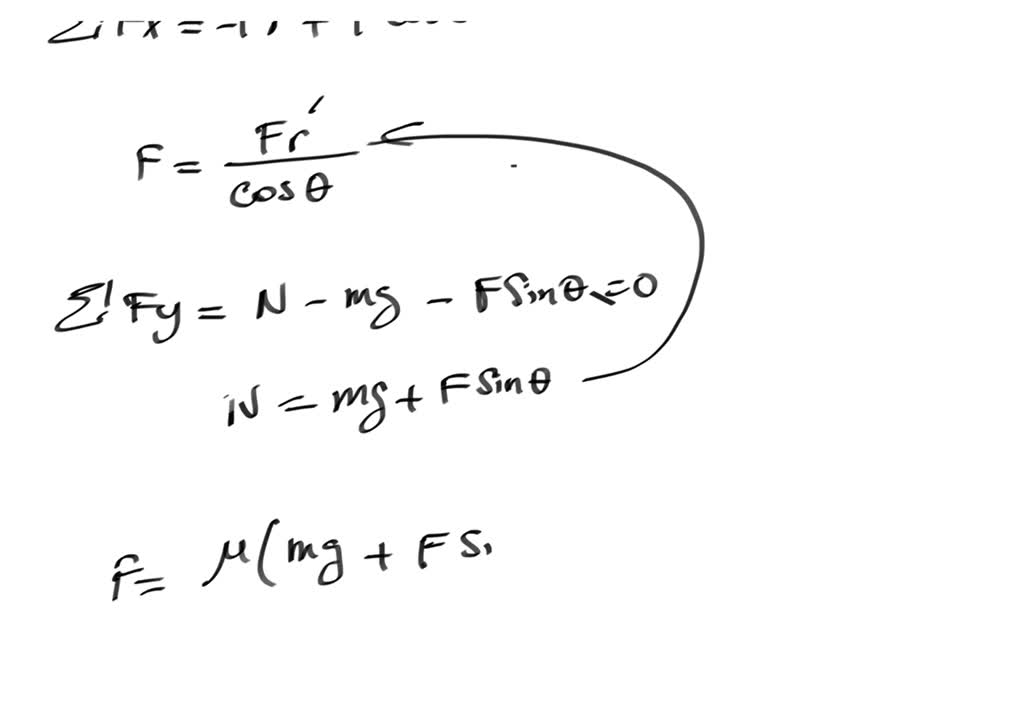 F = Fr' / cosθ
Σ Fy = N - mg - F Sinθ = 0
N = mg + F Sinθ
F = μ(mg + F S